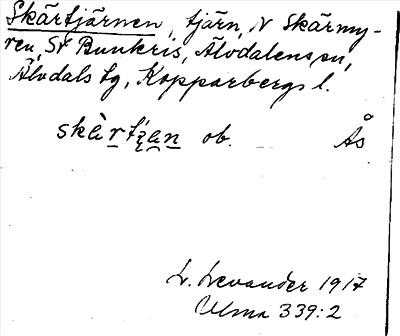 Skärtjärnen, tjärn, N Skärmy-
ren, SV Bunkris, Älvdalens sn,
Älvdals tg, Kopparbergs l.
ob. Ås
L. Levander 1917
Ulma 339:2